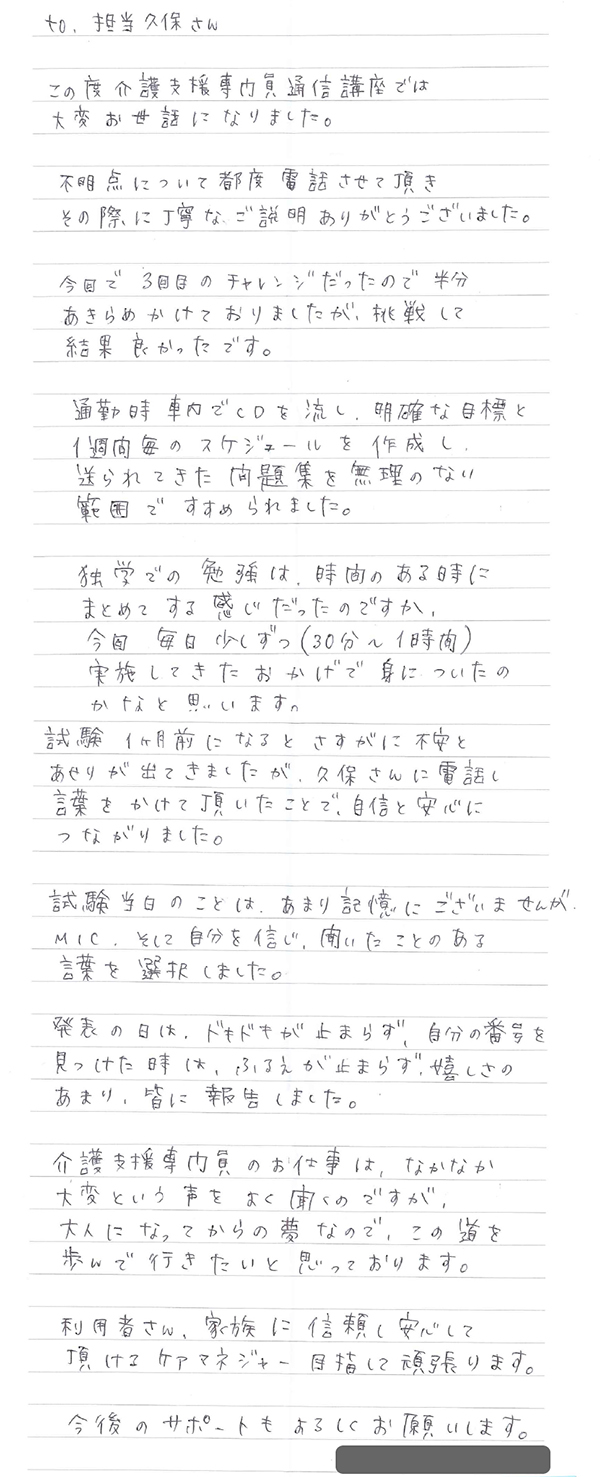 to. 担当久保さん
この度介護支援専門員通信講座では
大変お世話になりました。
不明点について都度電話させて頂き
その際に丁寧なご説明ありがとうございました。
今回で3回目のチャレンジだったので半分
あきらめかけておりましたが、挑戦して
結果良かったです。
通勤時車内でCDを流し、明確な目標と
1週間毎のスケジュールを作成し、
送られてきた問題集を無理のない
範囲ですすめられました。
独学での勉強は、時間のある時に
まとめてする感じだったのですが、
今回毎日少しずつ(30分〜1時間)
実施してきたおかげで身についたの
かなと思います。
試験1ヶ月前になるとさすがに不安と
あせりが出てきましたが、久保さんに電話し
言葉をかけて頂いたことで、自信と安心に
つながりました。
試験当日のことは、あまり記憶にございませんが、
MIC、そして自分を信じ、聞いたことのある
言葉を選択しました。
発表の日は、ドキドキが止まらず、自分の番号を
見つけた時は、ふるえが止まらず、嬉しさの
あまり、皆に報告しました。
介護支援専門員のお仕事は、なかなか
大変という声をよく聞くのですが、
大人になってからの夢なので、この道を
歩んで行きたいと思っております。
利用者さん、家族に信頼し安心して
頂けるケアマネジャー目指して頑張ります。
今後のサポートもよろしくお願いします。